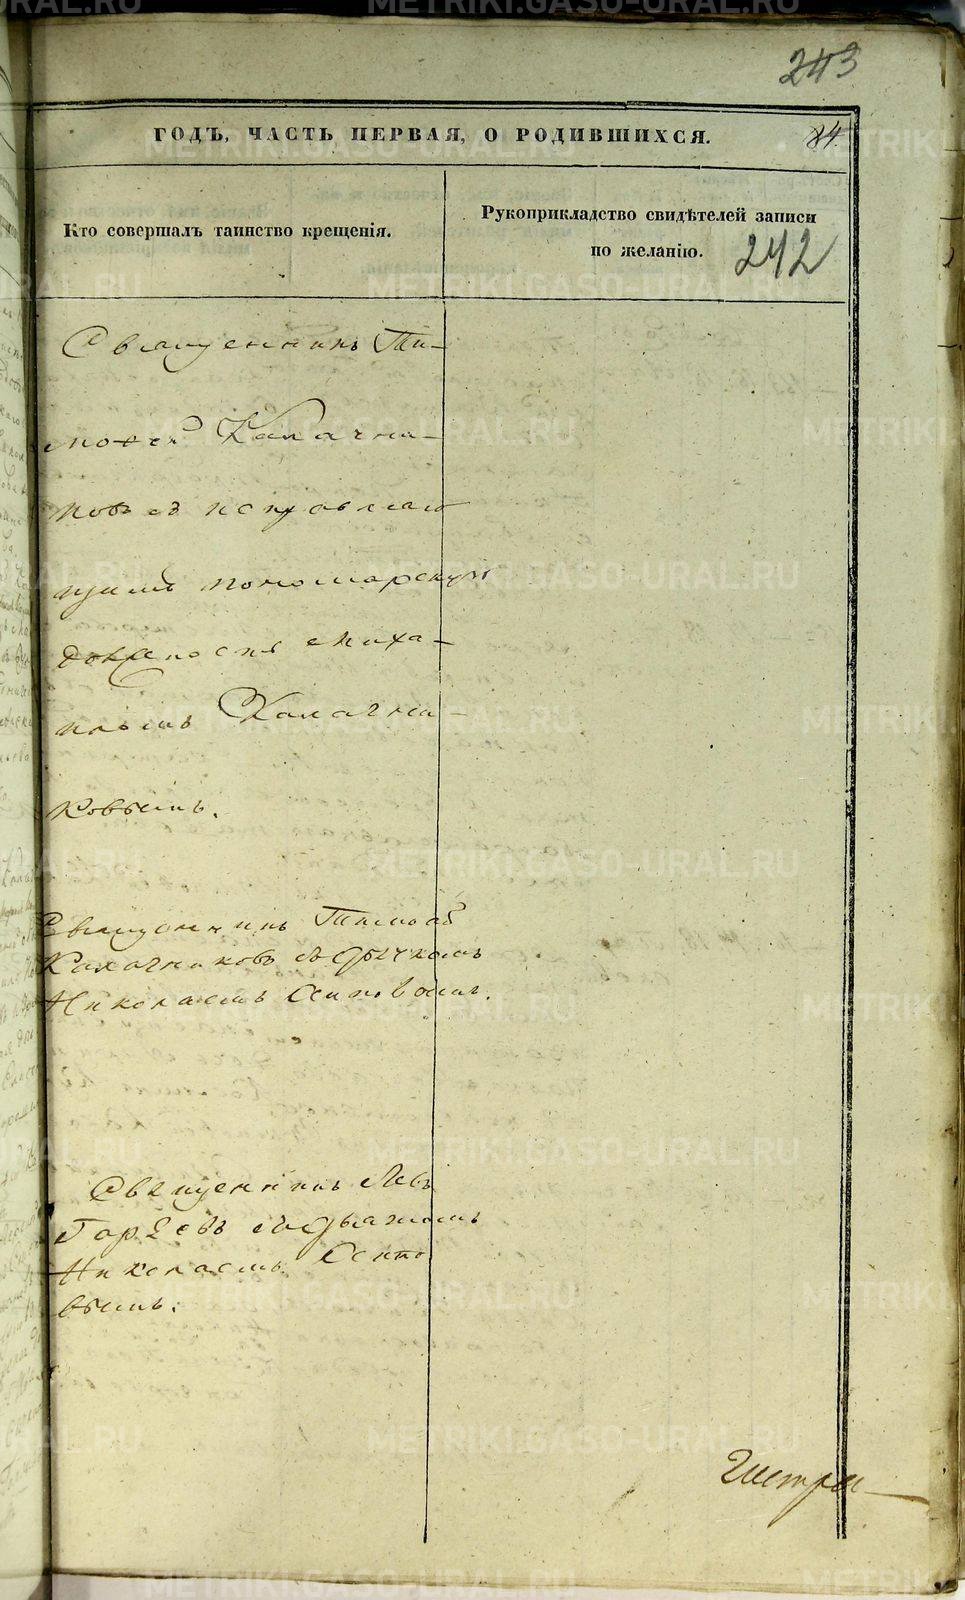 243
ГОДЪ, ЧАСТЬ ПЕРВАЯ, О РОДИВШИХСЯ.
84.
Кто совершалъ таинство крещенія.
Рукоприкладство свидѣтелей записи
по желанію.
242
Священникъ Ти-
мофей Калачни-
ковъ съ исправляю
щимъ пономарскую
должность Миха-
иломъ Калачни-
ковымъ.
Священникъ Тимоѳей
Калачниковъ съ дьячкомъ
Николаемъ Осиповымъ.
Священникъ Левъ
съ дьячкомъ
Николаемъ
вымъ.
METRIKI.GASO-URAL.RU